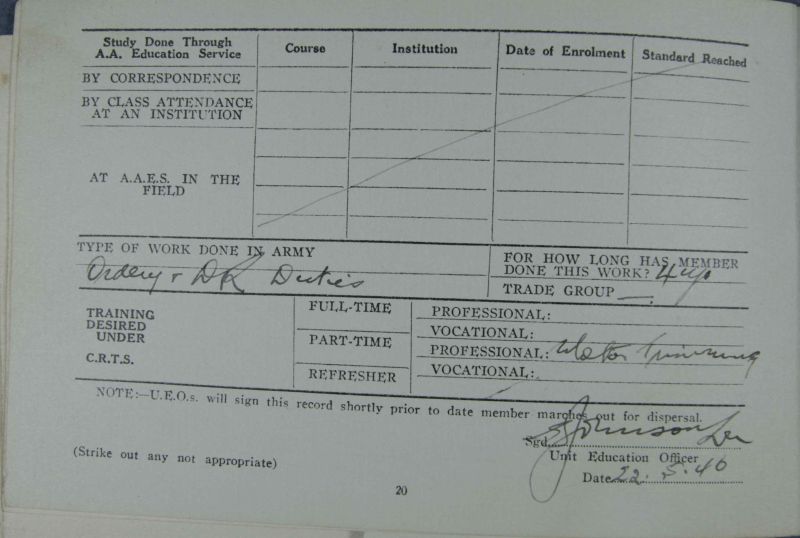 Study Done Through
A.A. Education Service
Course
Institution
Date of Enrolment
Standard Reached
BY CORRESPONDENCE
BY CLASS ATTENDANCE
AT AN INSTITUTION
AT A.A.E.S. IN THE
FIELD
TYPE OF WORK DONE IN ARMY
Duties
FOR HOW LONG HAS MEMBER
DONE THIS WORK? 4
TRADE GROUP —.
TRAINING
DESIRED
UNDER
C.R.T.S.
FULL-TIME
PROFESSIONAL:
VOCATIONAL:
PART-TIME
PROFESSIONAL:
REFRESHER
VOCATIONAL:
NOTE:—U.E.O.s. will sign this record shortly prior to date member marches out for dispersal.
Sgd. Johnson
(Strike out any not appropriate)
Unit Education Officer
Date 22.5.46
20